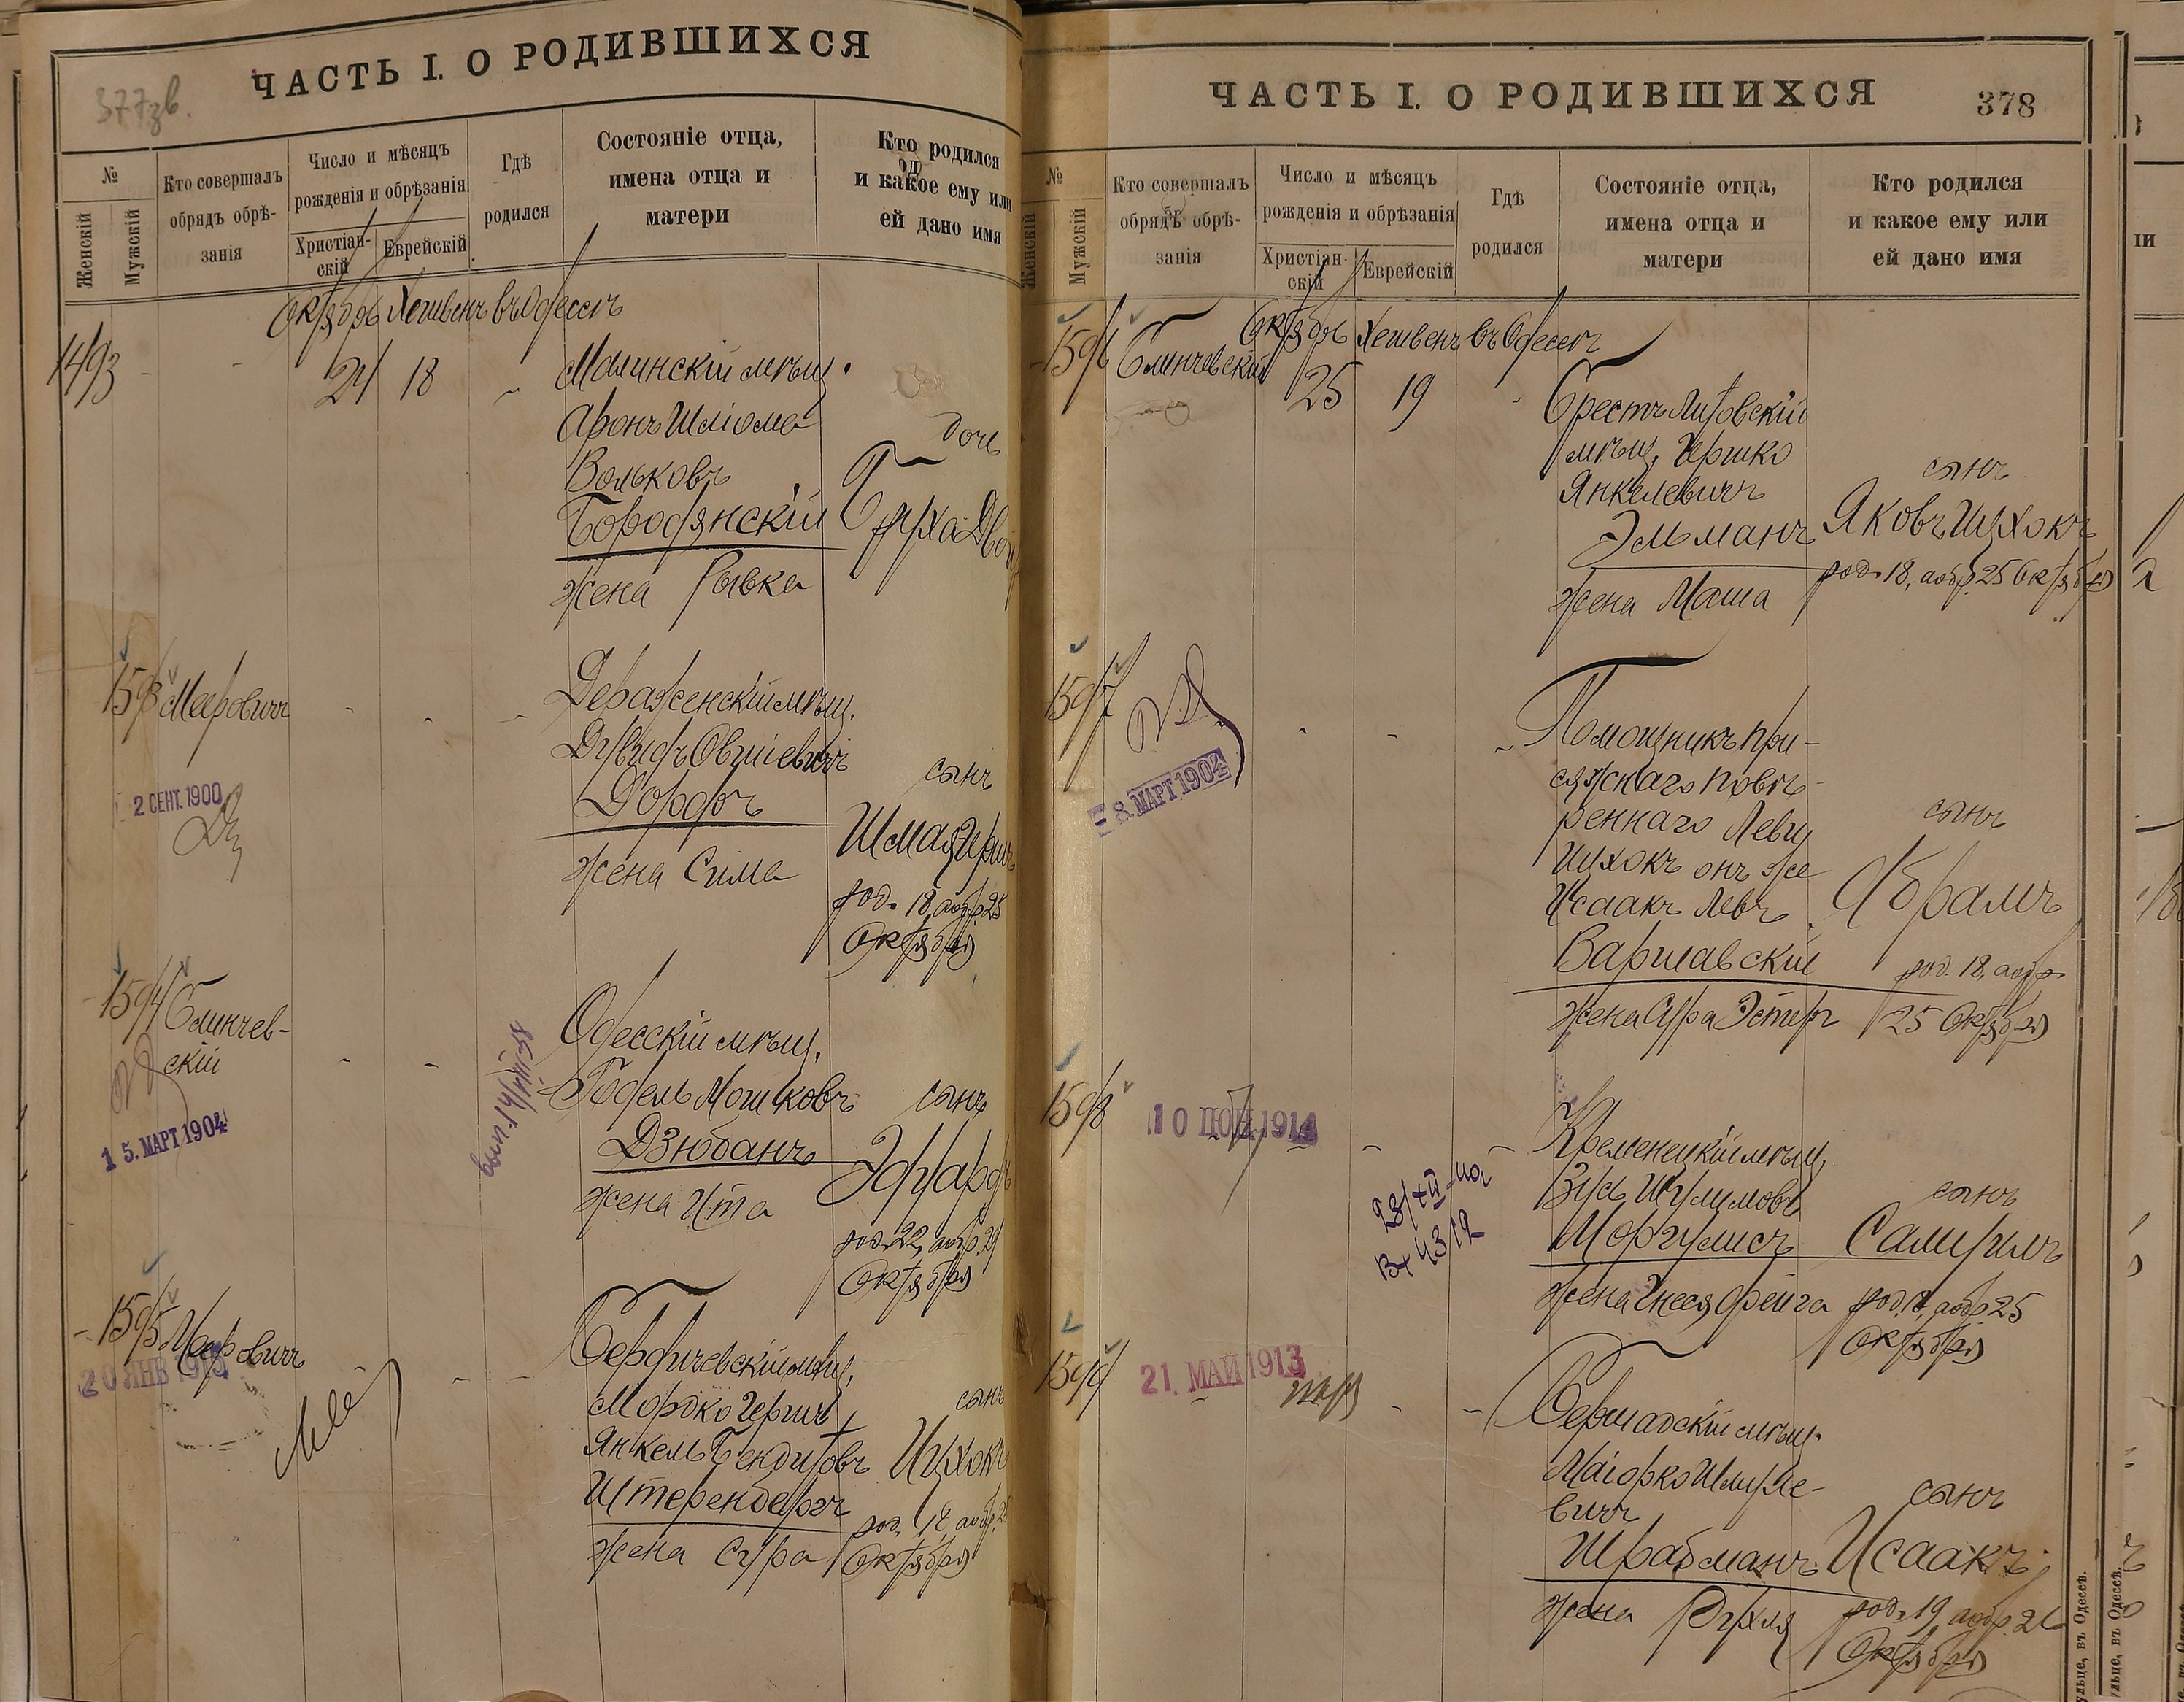 377зв.
ЧАСТЬ I. О РОДИВШИХСЯ
№
Женскій
Мужскій
Кто совершалъ
обрядъ обрѣ-
занія
Число и мѣсяцъ
рожденія и обрѣзанія
Христіан-
скій
Еврейскій
Гдѣ
родился
Состояніе отца,
имена отца и
матери
Кто родился
и какое ему или
ей дано имя
Октябрь Хешвенъ въ Одессѣ
1493 - - 24 18 -
Малинскій мѣщ.
Аронъ Шліома
Вольковъ
Бородянскій
жена Рывка
дочь
Бруха Двойр
1593 Мееровичъ - - -
2 СЕНТ. 1900
Деражненскій мѣщ.
Дувидъ Овшіевичъ
Дорфъ
жена Сима
сынъ
Шмая Герш
род. 18, аобр 25
Октября
1594 Блинчев-
скій - -
15. МАРТ 1904
Одесскій мѣщ.
Годель Мошковъ
Дзюбанъ
жена Ита
сынъ
Эдуардъ
род. 22, аобр. 29
Октября
- 1595 Мееровичъ - -
20 ЯНВ 1915
Бердичевскій мѣщ.
Мордко Герш
Янкель Бендитовъ
Штеренбергъ
жена Сура
сынъ
Ицхокъ
род. 18, аобр. 25
Октября
ЧАСТЬ I. О РОДИВШИХСЯ
378
№
Женскій
Мужскій
Кто совершалъ
обрядъ обрѣ-
занія
Число и мѣсяцъ
рожденія и обрѣзанія
Христіан-
скій
Еврейскій
Гдѣ
родился
Состояніе отца,
имена отца и
матери
Кто родился
и какое ему или
ей дано имя
Октябрь Хешвенъ въ Одессѣ
1596 Блинчевскій 25 19 -
Брестъ Литовскій
мѣщ. Гершко
Янкелевичъ
Эльманъ
жена Маша
сынъ
Яковъ Ицхокъ
род. 18, аобр. 25 Октября
1597 - - -
8. МАРТ 1904
Помощникъ при-
сяжнаго повѣ-
реннаго Левъ
Ицхокъ онъ же
Исаакъ Левъ
Варшавскій
жена Сура Эстеръ
сынъ
Абрамъ
род. 18, аобр.
25 Октября
1598 - - -
Кременецкій мѣщ.
Зусь Шулимовъ
Моргулисъ
жена Гнеся Фейга
сынъ
Самуилъ
род. 18, аобр 25
Октября
1599 - - -
21. МАЙ 1913
Бершадскій мѣщ.
Маіорко Шмуле-
вичъ
Шрабманъ
жена Рухля
сынъ
Исаакъ
род. 19, аобр. 26
Октября
ульце, въ Одессѣ.
ульце, въ Одессѣ.